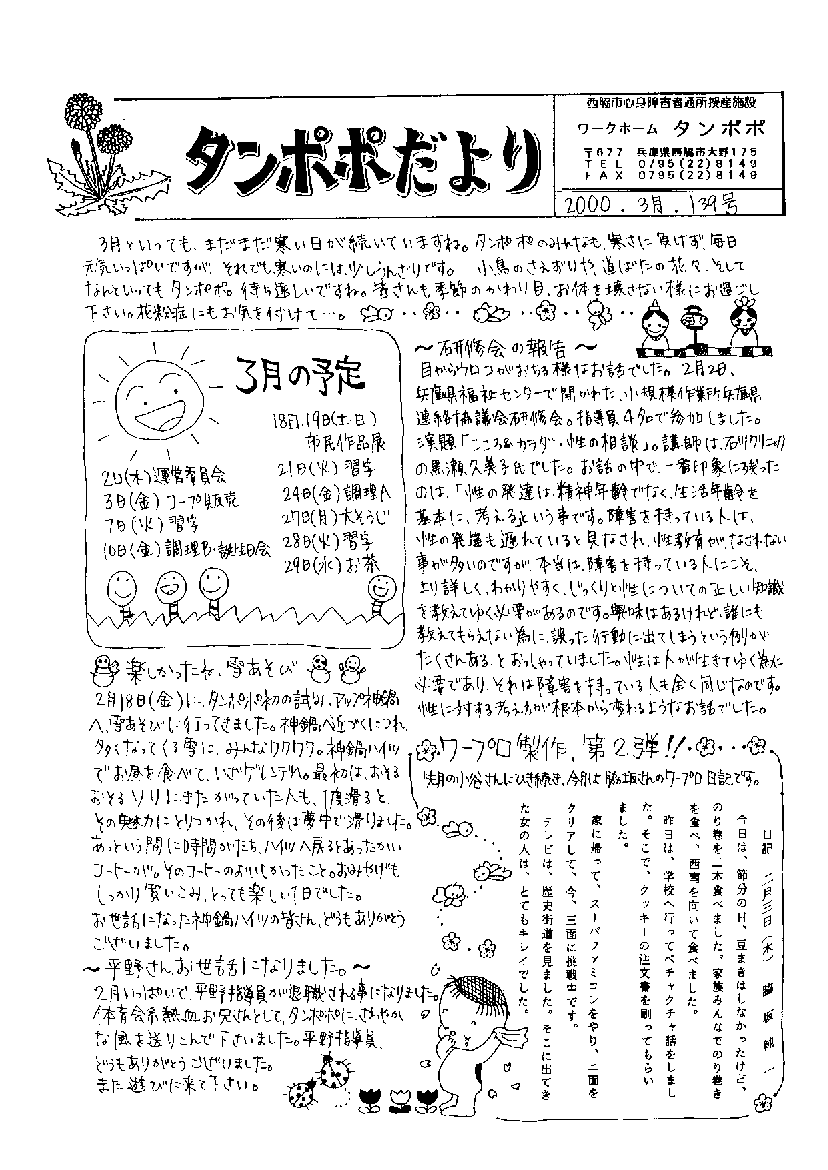 タンポポだより
西脇市心身障害者通所授産施設
ワークホーム タンポポ
〒677 兵庫県西脇市大野175
TEL 0795(22)8149
FAX 0795(22)8149
2000.3月.139号
3月といっても、まだまだ寒い日が続いていますね。タンポポのみんなも、寒さに負けず、毎日
元気いっぱいですが、それでも寒いのには、少しうんざりです。 小鳥のさえずりや、道ばたの花々、そして
なんといってもタンポポ。待ち遠しいですね。皆さんも季節のかわり目、お体を壊さない様にお過ごし
下さい。花粉症にもお気を付けて…。
3月の予定
18日、19日(土、日)
市民作品展
2日(木)運営委員会
3日(金)コープ販売
7日(火)習字
10日(金)調理B・誕生日会
21日(火)習字
24日(金)調理A
27日(月)大そうじ
28日(火)習字
29日(水)お茶
楽しかったね、雪あそび
2月18日(金)に、タンポポ初の試み、アップ神鍋
へ、雪あそびに行ってきました。神鍋へ近づくにつれ、
多くなってくる雪に、みんなワクワク。神鍋ハイツ
でお昼を食べて、いざゲレンデへ。最初は、おそる
おそるソリにまたがっていた人も、1度滑ると、
その魅力にとりつかれ、その後は夢中で滑りました。
あっという間に時間がたち、ハイツへ戻るとあったかい
コーヒーが。そのコーヒーのおいしかったこと。おみやげも
しっかり買いこみ、とっても楽しい1日でした。
お世話になった神鍋ハイツの皆さん、どうもありがとう
ございました。
～平野さん、お世話になりました。～
2月いっぱいで、平野指導員が退職される事になりました。
体育会系熱血お兄さんとして、タンポポに、さわやか
な風を送りこんで下さいました。平野指導員、
どうもありがとうございました。
また遊びに来て下さい。
～研修会の報告～
目からウロコがおちる様なお話でした。2月2日、
兵庫県福祉センターで開かれた、小規模作業所兵庫県
連絡協議会研修会。指導員4名で参加しました。
演題「こころ&カラダ・性の相談」。講師は、石川クリニック
の黒瀬久美子氏でした。お話の中で、一番印象に残った
のは、「性の発達は、精神年齢でなく、生活年齢を
基本に、考えるという事です。障害を持っている人は、
性の発達も遅れていると見なされ、性教育がなされない
事が多いのですが、本当は、障害を持っている人にこそ、
より詳しく、わかりやすく、じっくりと性についての正しい知識
を教えてゆく必要があるのです。興味はあるけれど、誰にも
教えてもらえない為に、誤った行動に出てしまうという例が
たくさんある、とおっしゃっていました。性は人が生きてゆく為に
必要であり、それは障害を持っている人も全く同じなのです。
性に対する考え方が根本から変わるようなお話でした。
ワープロ製作、第2弾!!
先月の小谷さんにひき続き、今月は 坂さんのワープロ日記です。
日記 二月三日(木)
今日は、節分の日、豆まきはしなかったけど、
のり巻を二本食べました。家族みんなでのり巻き
を食べ、西南を向いて食べました。
昨日は、学校へ行ってペチャクチャ話をしまし
た。そこで、クッキーの注文書を刷ってもらい
ました。
家に帰って、スーパファミコンをやり、二面を
クリアして、今、三面に挑戦中です。
テレビは、歴史街道を見ました。そこに出てき
た女の人は、とてもキレイでした。